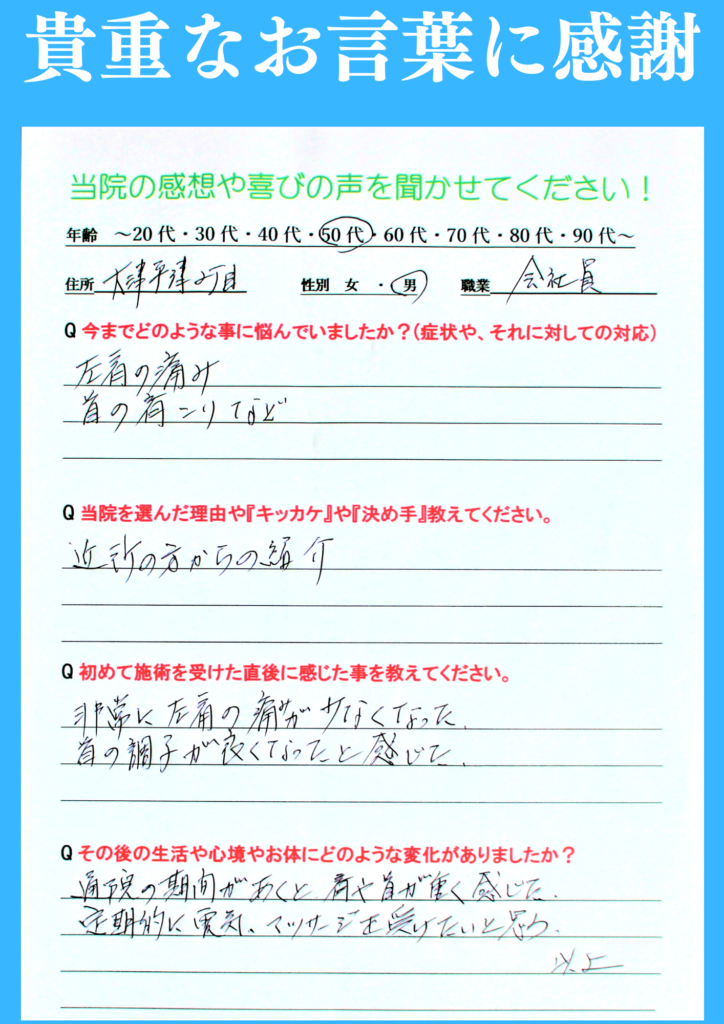 貴重なお言葉に感謝
当院の感想や喜びの声を聞かせてください！
年齢 ～20代・30代・40代・50代・60代・70代・80代・90代～
住所 大津平津2丁目 性別 女 ・ 男 職業 会社員
Q 今までどのような事に悩んでいましたか？(症状や、それに対しての対応)
左肩の痛み
首の肩こりなど
Q 当院を選んだ理由や『キッカケ』や『決め手』教えてください。
近所の方からの紹介
Q 初めて施術を受けた直後に感じた事を教えてください。
非常に左肩の痛みが少なくなった.
首の調子が良くなったと感じた.
Q その後の生活や心境やお体にどのような変化がありましたか？
通院の期間があくと、肩や首が重く感じた.
定期的に電気、マッサージを受けたいと思う.
以上